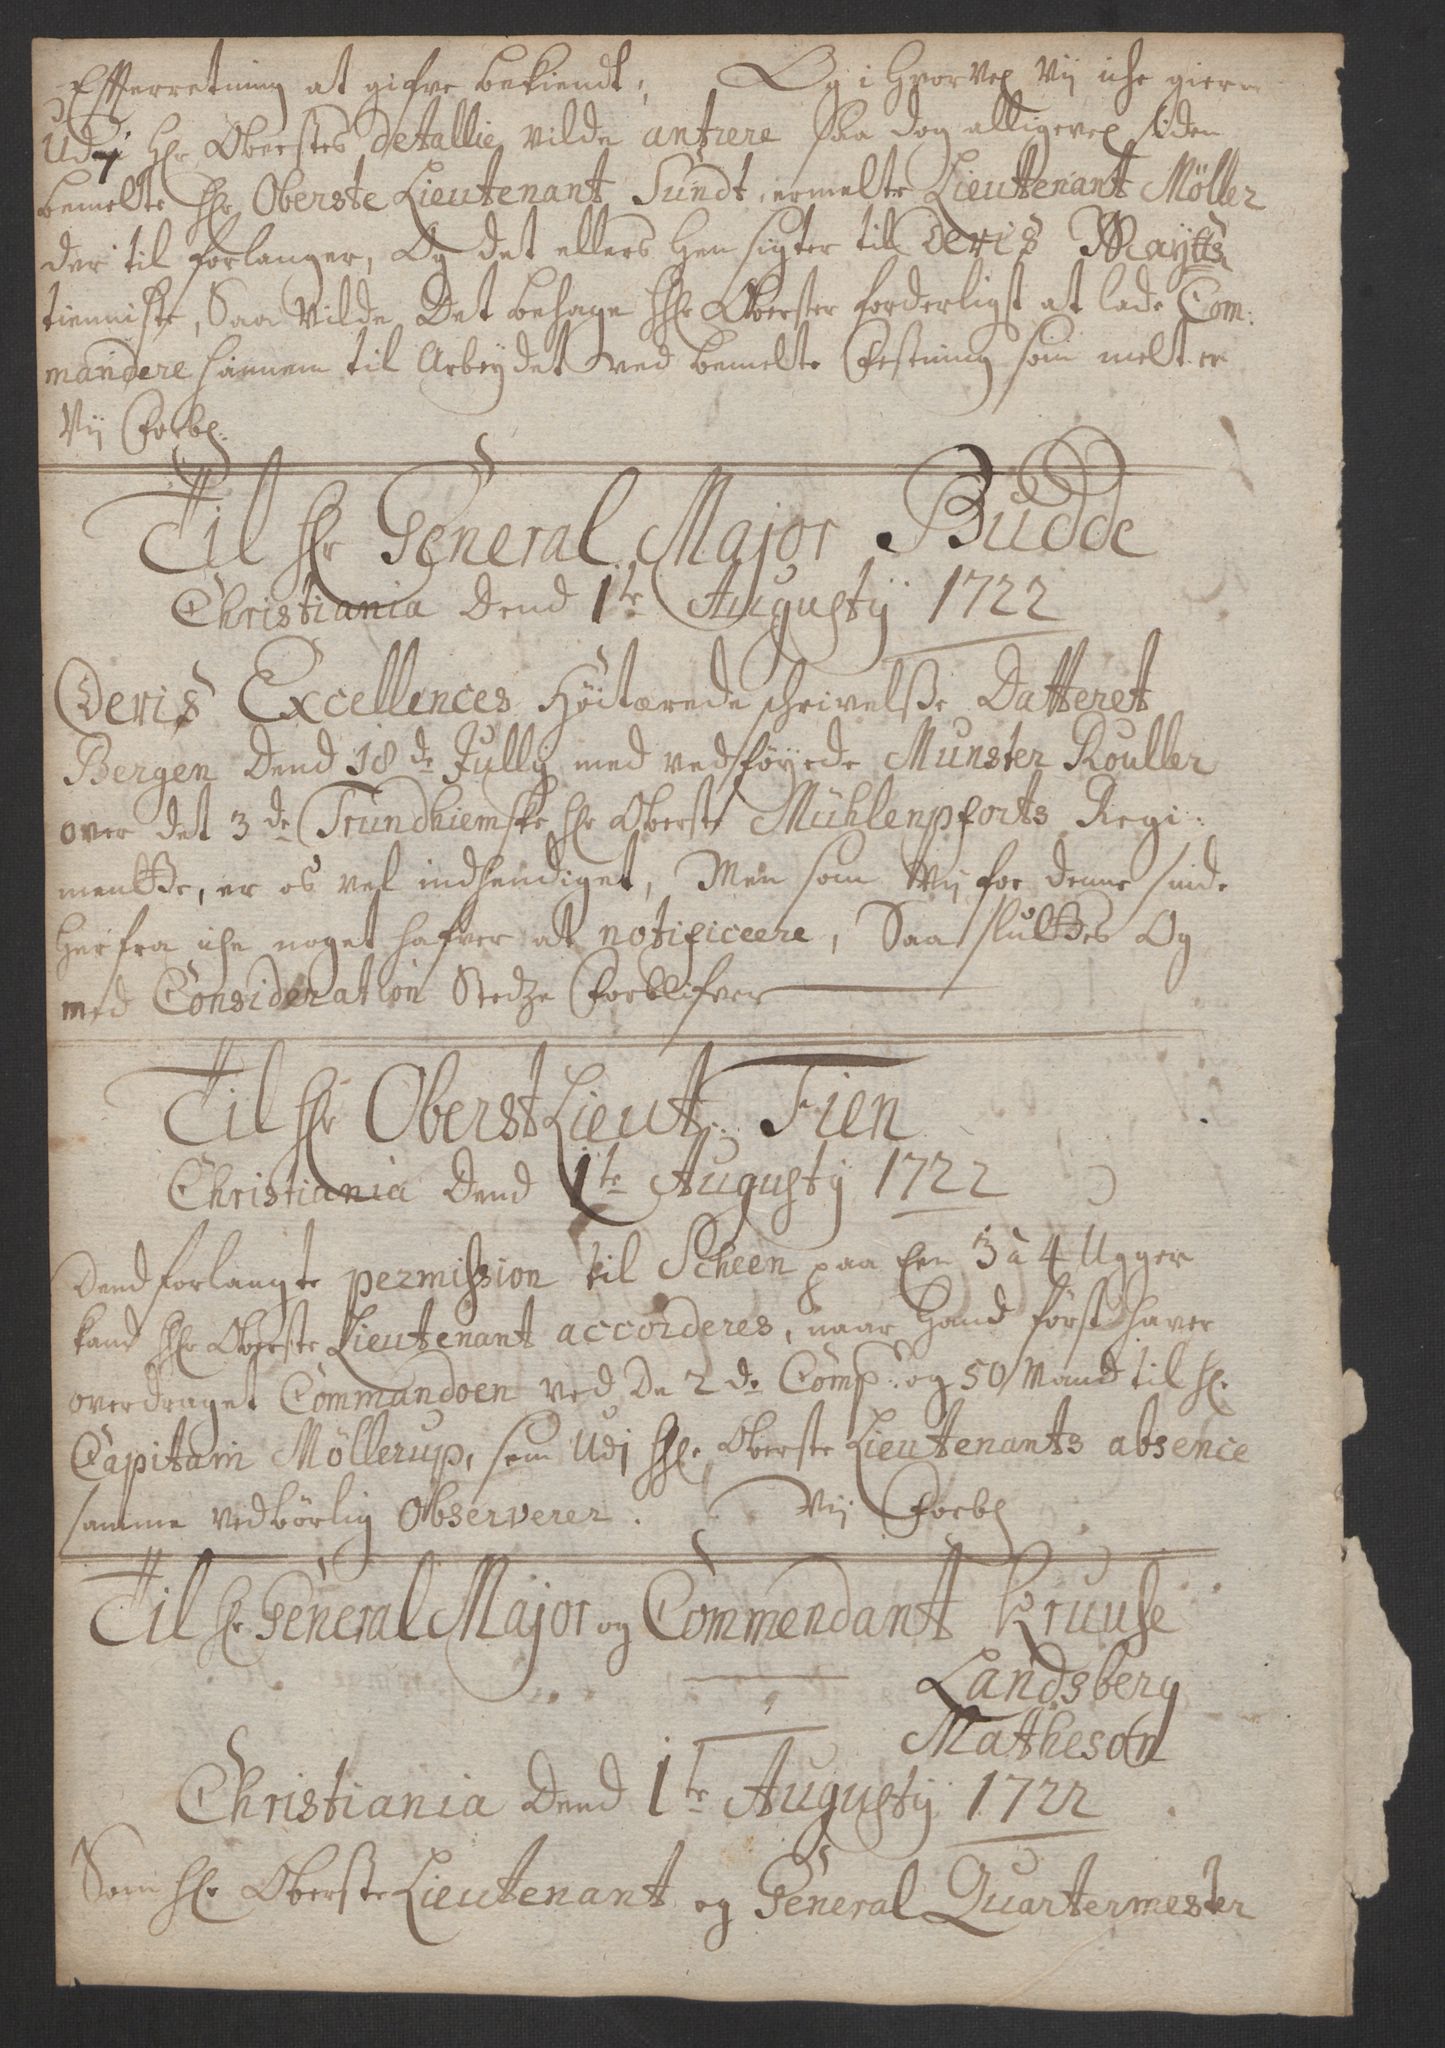 Efterretning at gifve bekiendt; Og i hvorvel Vij iche gierne
Udj Hr Oberstes detallie vilde antrere saa dog alligevel siden
bemelte Hr Oberste Lieutenant Sundt, ermelte Lieutenant Möller
der til forlanger, Og det ellers hensigter til Deris Maytts
tienniste, Saa Vilde Det behage Hr Oberster forderligst at lade Com:
mandere hannem til Arbeydet ved bemelte Festning som melt er
Vij Forbl:
Til Hr General Major Budde
Christiania Dend 1te Augustij 1722
Deris Excellences Höitærede schrivelsse Datteret
Bergen Dend 18de Jullij med vedföyede Munster Rouller
over det 3de Trundhiemske Hr Oberste Mühlenpforts Regi:
mentte, er os vel indhendiget, Men som Vij for denne sinde
herfra iche noget hafver at notificeere, Saa sluttes Og
med Consideration Stedze Forblifver
Til Hr Oberst Lieut: Fien
Christiania Dend 1te Augustij 1722
Dend forlangte permission til Scheen paa Een 3 à 4 Ugger
kand Hr Oberste Lieutenant accorderes, naar Hand först haver
overdraget Commandoen ved De 2de Comp: og 50 Mand til Hr
Capitain Möllerup, som Udj Hr Oberste Lieutenants absence
samme vedbörlig Observerer. Vij Forbl
Til Hr General Major og Commendant Kruuse
Landsberg
Matheson
Christiania Dend 1te Augustij 1722
Som Hr Oberste Lieutenant og General Quartermester